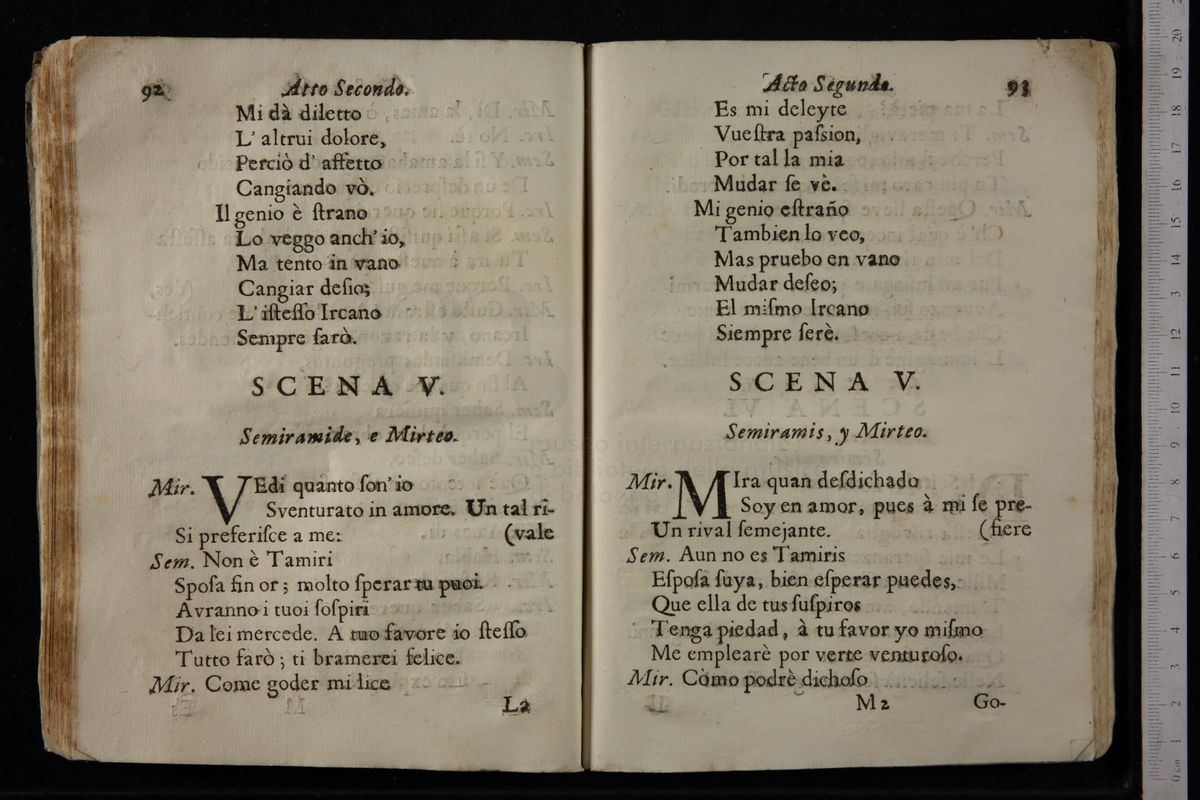 92 Atto Secondo.
Mi dà diletto
L' altrui dolore,
Perciò d' affetto
Cangiando vò.
Il genio è ſtrano
Lo veggo anch' io,
Ma tento in vano
Cangiar deſio;
L' iſteſſo Ircano
Sempre ſarò.
SCENA V.
Semiramide, e Mirteo.
Mir. VEdi quanto ſon' io
Sventurato in amore. Un tal ri-
Si preferiſce a me: (vale
Sem. Non è Tamiri
Spoſa fin or; molto ſperar tu puoi.
Avranno i tuoi ſoſpiri
Da lei mercede. A tuo favore io ſteſſo
Tutto farò; ti bramerei felice.
Mir. Come goder mi lice
La
Acto Segundo. 93
Es mi deleyte
Vueſtra paſsion,
Por tal la mia
Mudar ſe vè.
Mi genio eſtraño
Tambien lo veo,
Mas pruebo en vano
Mudar deſeo;
El miſmo Ircano
Siempre ſerè.
SCENA V.
Semiramis, y Mirteo.
Mir. MIra quan deſdichado
Soy en amor, pues à mi ſe pre-
Un rival ſemejante. (fiere
Sem. Aun no es Tamiris
Eſpoſa ſuya, bien eſperar puedes,
Que ella de tus ſuſpiros
Tenga piedad, à tu favor yo miſmo
Me emplearè por verte venturoſo.
Mir. Còmo podrè dichoſo
M 2 Go-